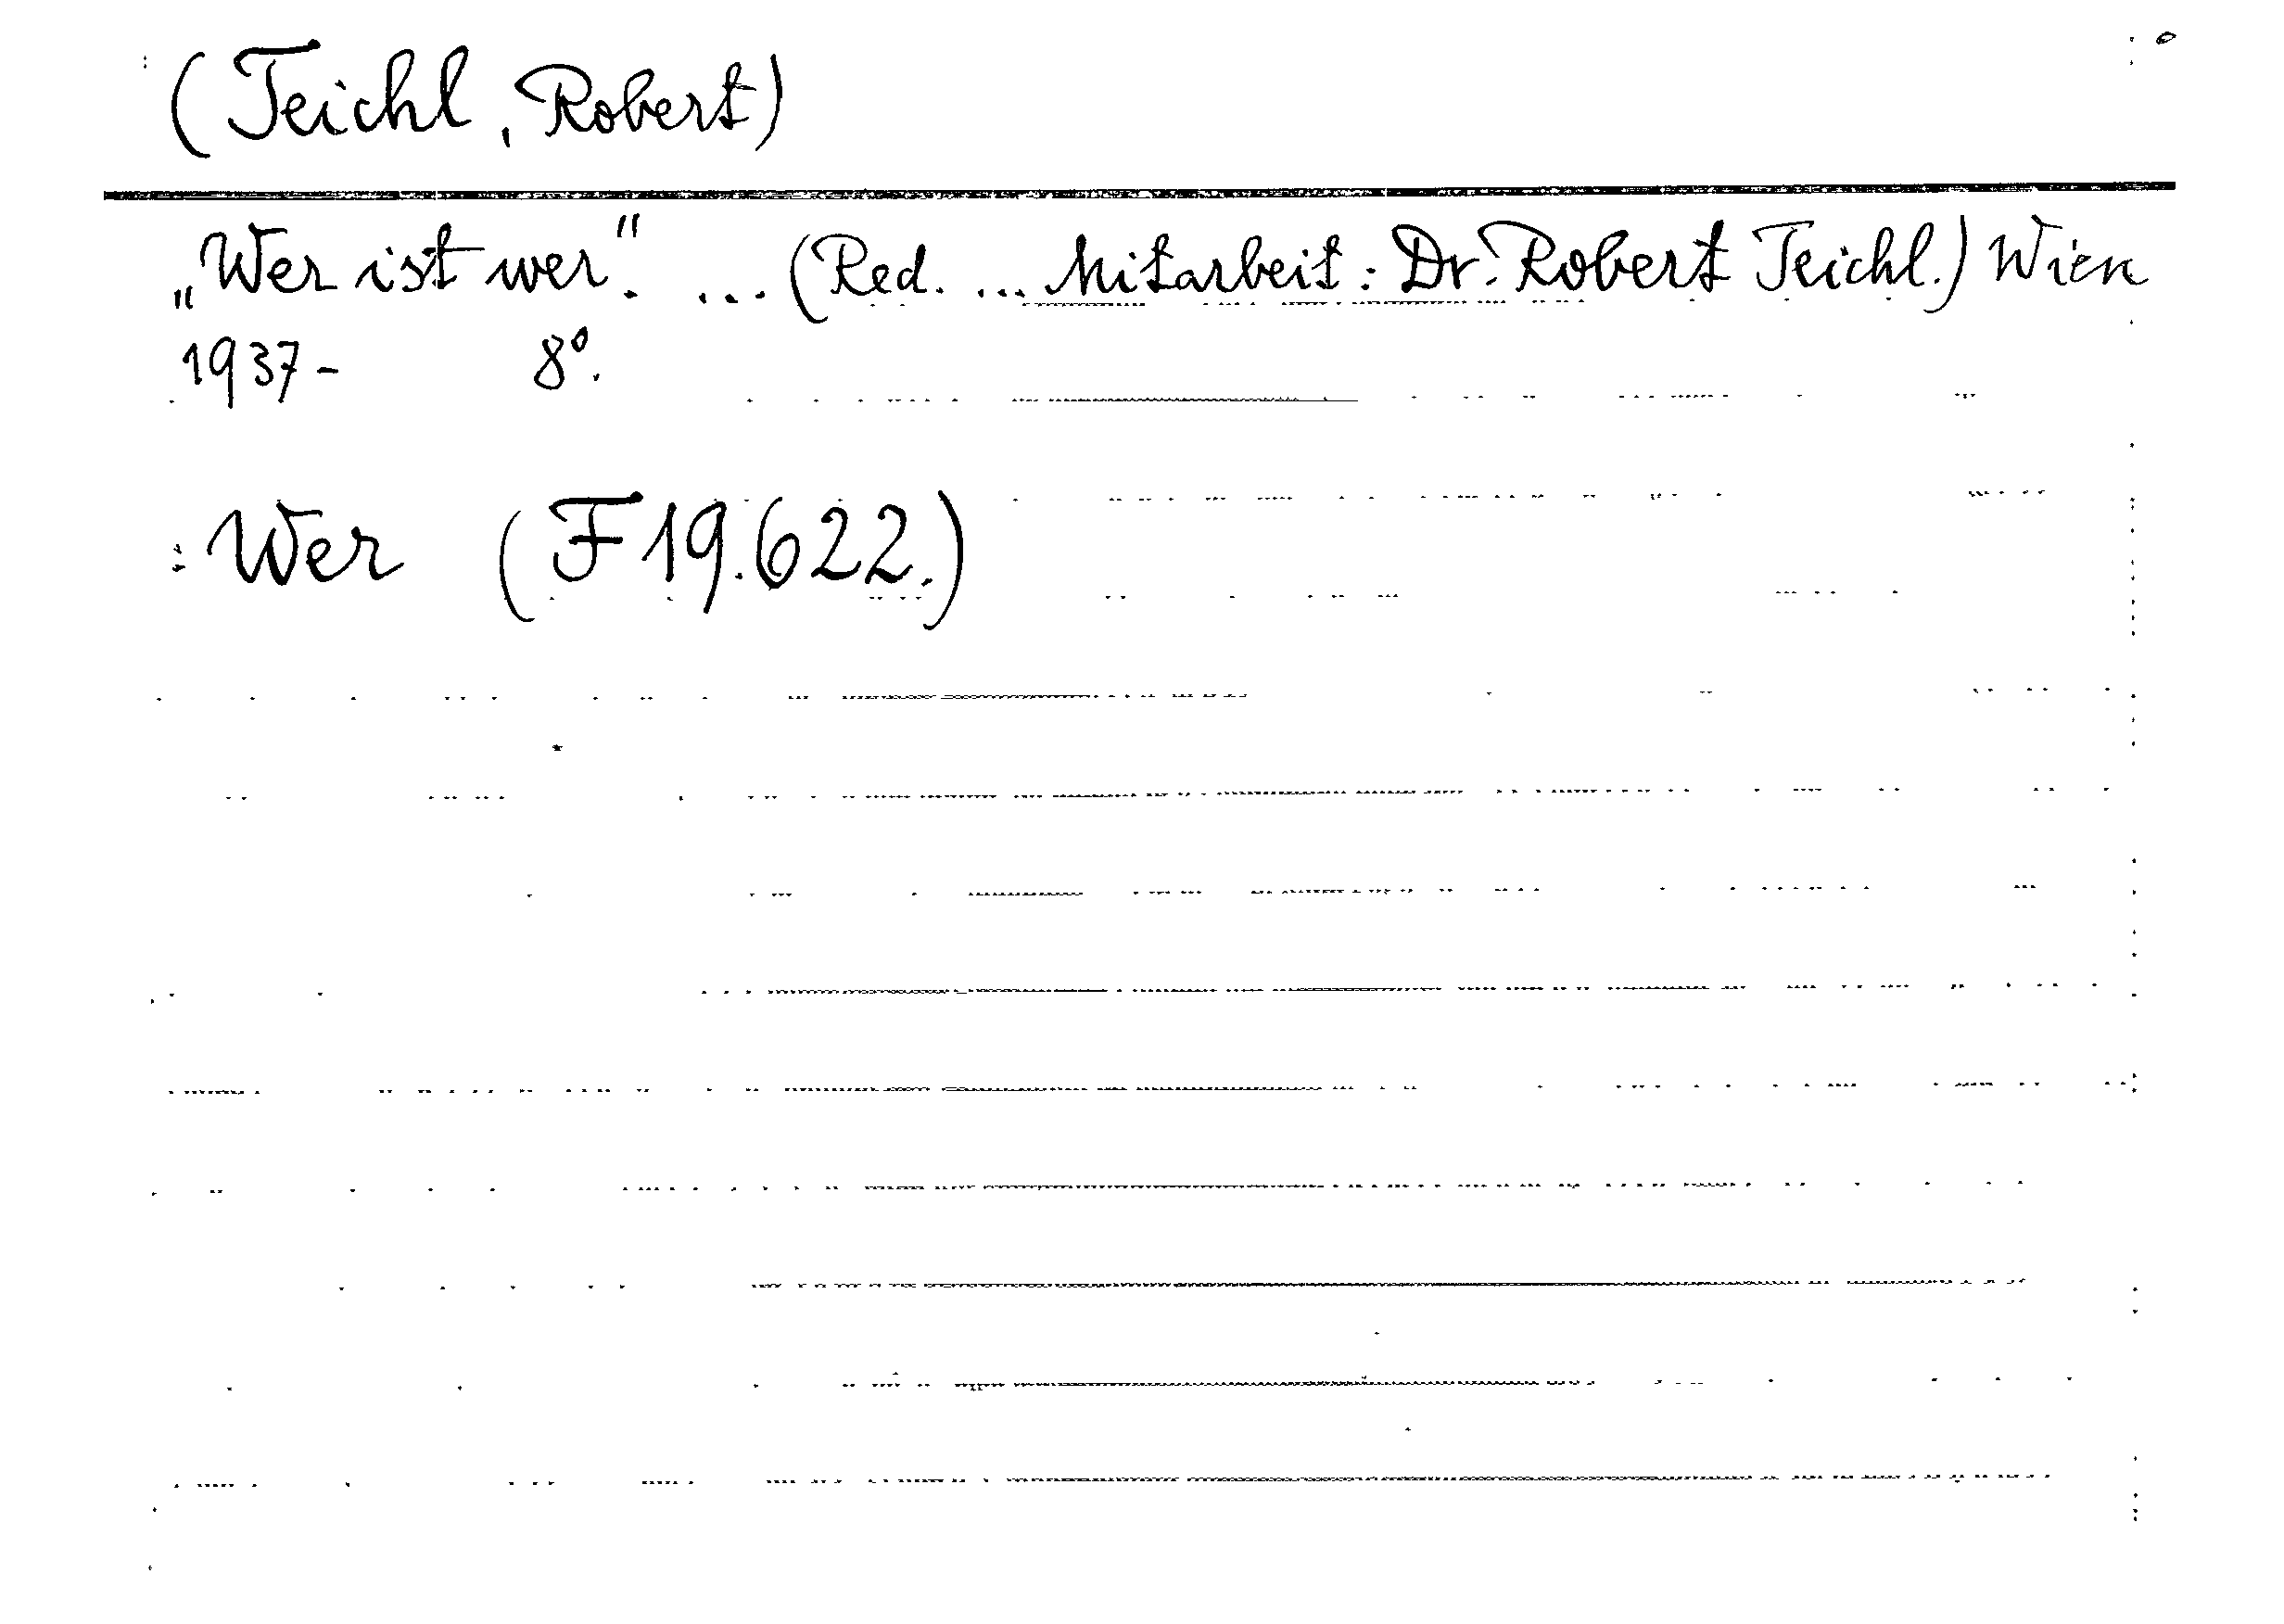 (Teichl, Robert)
„Wer ist wer“. ... (Red. ... Mitarbeit: Dr. Robert Teichl.) Wien
1937- 8°.
: Wer (F 19.622.)